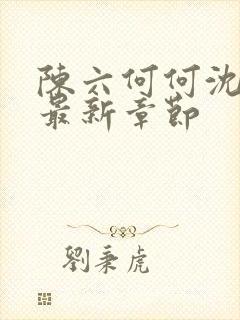 陳六何何沈
最新章節
劉秉虎